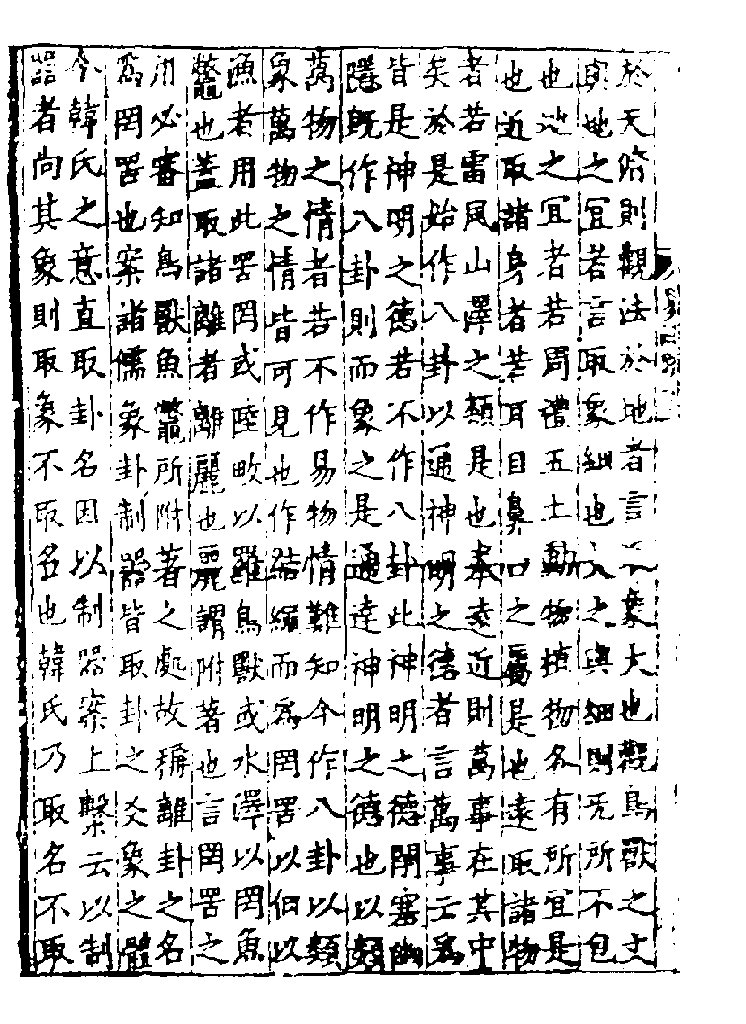 於天俯則觀法於地者言象大也觀鳥獸之文
與地之宜者言取象細也大之與細則无所不包
也地之宜者若周禮五土動物植物各有所宜是
也近取諸身者若耳目鼻口之屬是也遠取諸物
者若雷風山澤之類是也舉遠近則萬事在其中
矣於是始作八卦以通神明之德者言萬事云爲
皆是神明之德若不作八卦此神明之德閉塞幽
隱既作八卦則而象之是通達神明之德也以類
萬物之情者若不作易物情難知今作八卦以類
象萬物之情皆可見也作結繩而爲罔罟以佃以
漁者用此罟罔或陸畋以羅鳥獸或水澤以罔魚
鼈也蓋取諸離者離麗也麗謂附著也言罔罟之
用必審知鳥獸魚鼈所附著之處故稱離卦之名
爲罔罟也案諸儒象卦制器皆取卦之爻象之體
今韓氏之意直取卦名因以制器案上繫云以制
器者尚其象則取象不取名也韓氏乃取名不取